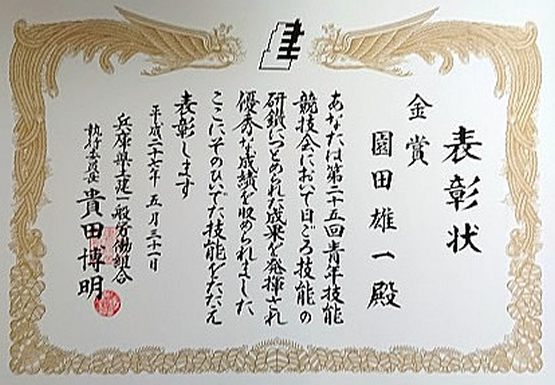 表彰状
金賞
園田雄一殿
あなたは第二十五回青年技能
競技会において日ごろ技能の
研鑽につとめられた成果を発揮され
優秀な成績を収められました
ここにそのひいでた技能をたたえ
表彰します
平成二十六年五月三十一日
兵庫県土建一般労働組合
執行委員長
貴田博明